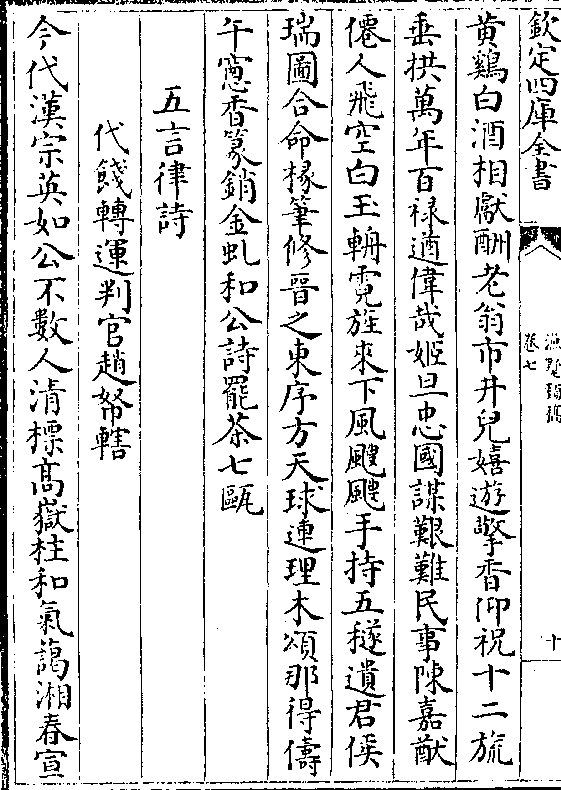 欽定四庫全書
卷七
十
黄鷄白酒相獻酬老翁市井兒嬉遊擎香仰祝十二旒
垂拱萬年百禄遒偉哉姬旦忠國謀艱難民事陳嘉猷
僊人飛空白玉輈霓旌來下風颼颼手持五穟遺君侯
瑞圖合命椽筆修晉之東序方天球連理木頌那得儔
午窻香篆銷金虬和公詩罷茶七甌
五言律詩
代餞轉運判官趙帑轄
今代漢宗英如公不數人清標髙嶽柱和氣藹湘春宣